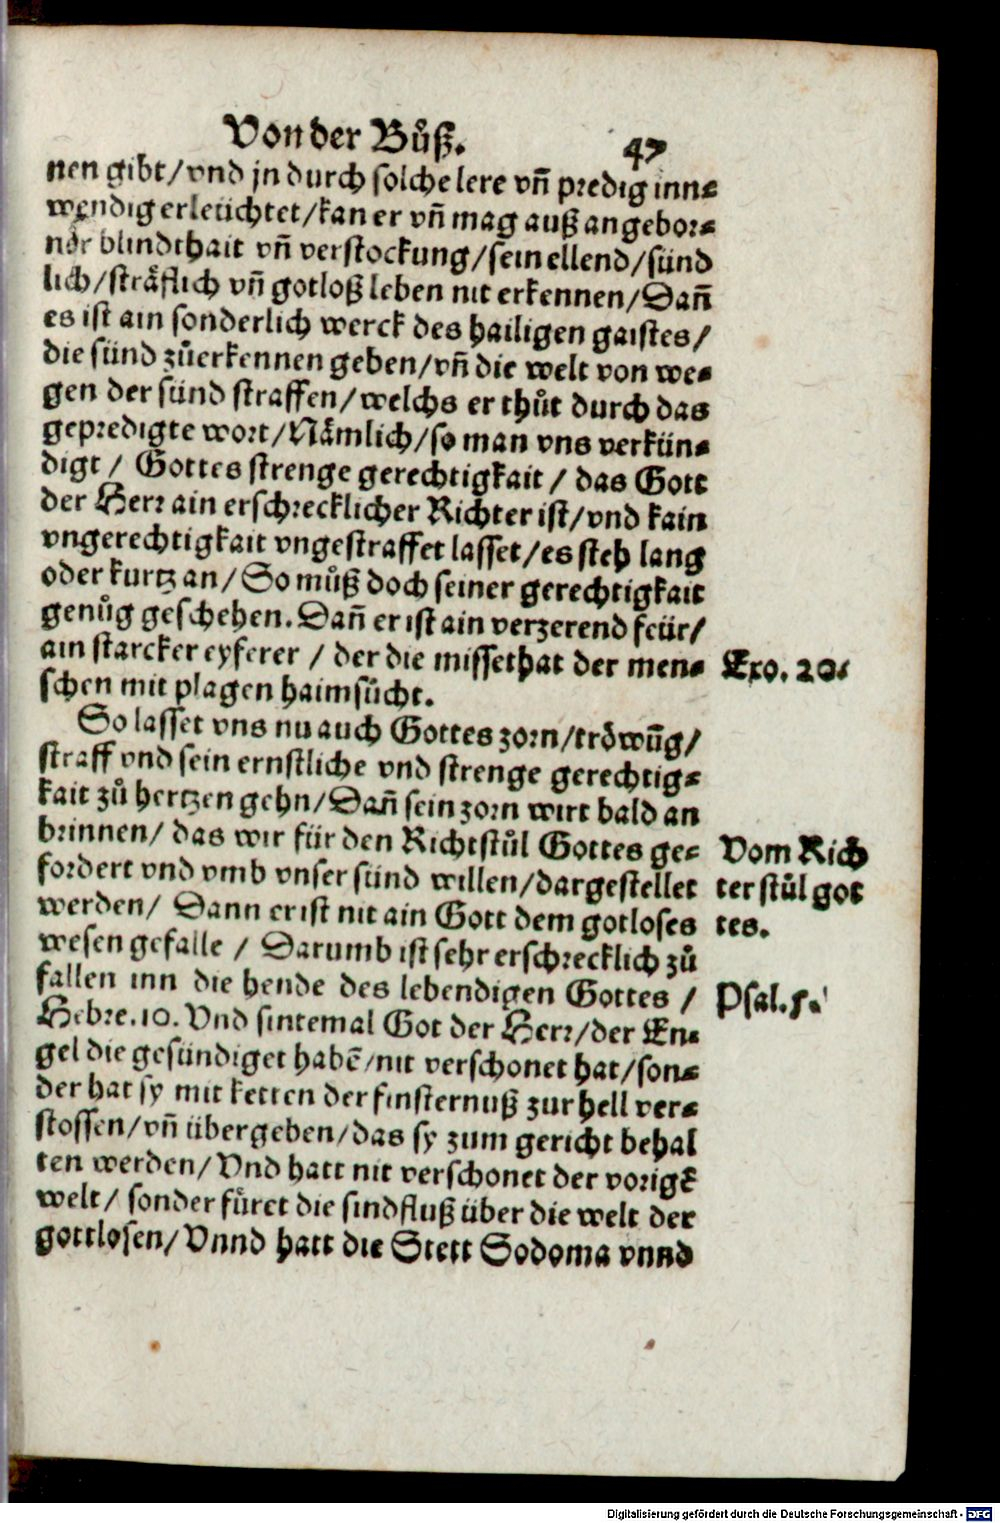 Von der Bůß. 47
nen gibt/vnd jn durch solche lere vñ predig inn⸗
wendig erleüchtet/kan er vñ mag auß angebor⸗
ner blindthait vñ verstockung/sein ellend/sünd
lich/sträflich vñ gotloß leben nit erkennen/Dañ
es ist ain sonderlich werck des hailigen gaistes/
die sünd zůerkennen geben/vñ die welt von we⸗
gen der sünd straffen/welchs er thůt durch das
gepredigte wort/Nämlich/so man vns verkün⸗
digt / Gottes strenge gerechtigkait / das Gott
der Herr ain erschrecklicher Richter ist/vnd kain
vngerechtigkait vngestraffet lasset/es steh lang
oder kurtz an/So můß doch seiner gerechtigkait
genůg geschehen. Dañ er ist ain verzerend feür/
ain starcker eyferer / der die missethat der men⸗
schen mit plagen haimsůcht.
Exo. 20.
So lasset vns nu auch Gottes zorn/tröwũg/
straff vnd sein ernstliche vnd strenge gerechtig⸗
kait zů hertzen gehn/Dañ sein zorn wirt bald an
brinnen/ das wir für den Richtstůl Gottes ge⸗
fordert vnd vmb vnser sünd willen/dargestellet
werden/ Dann er ist nit ain Gott dem gotloses
wesen gefalle / Darumb ist sehr erschrecklich zů
fallen inn die hende des lebendigen Gottes /
Hebre.10. Vnd sintemal Got der Herr/der En⸗
gel die gesündiget habẽ/nit verschonet hat/son⸗
der hat sy mit ketten der finsternuß zur hell ver⸗
stossen/vñ übergeben/das sy zum gericht behal
ten werden/Vnd hatt nit verschonet der vorigẽ
welt/ sonder fůret die sindfluß über die welt der
gottlosen/Vnnd hatt die Stett Sodoma vnnd
Vom Rich
ter stůl got
tes.
Psal.5.
Digitalisierung gefördert durch die Deutsche Forschungsgemeinschaft - DFG